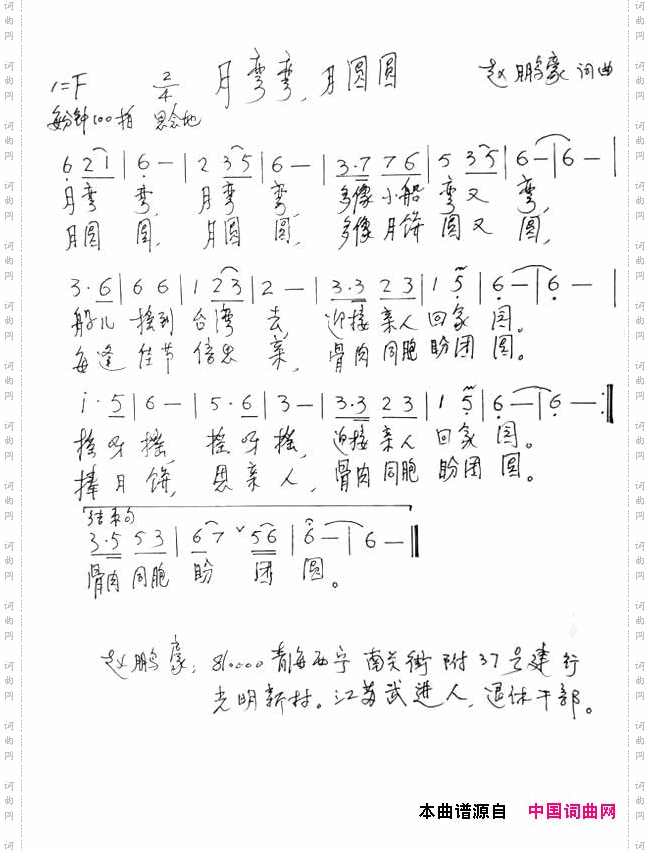 月弯弯，月圆圆
1=F 2/4 赵鹏豪 词曲
每分钟100拍 思念地
6 2 1 | 6 — | 2 3 5 | 6 — | 3·7 7 6 | 5 3 5 | 6 — | 6 — |
月弯 弯， 月弯 弯， 多像小船 弯又 弯，
月圆 圆， 月圆 圆， 多像月饼 圆又 圆，
3·6 | 6 6 | 1 2 3 | 2 — | 3·3 2 3 | 1 5 | 6 — | 6 — |
船儿 摇到 台湾 去， 迎接亲人 回家 园。
每逢 佳节 倍思 亲， 骨肉同胞 盼团 圆。
i·5 | 6 — | 5·6 | 3 — | 3·3 2 3 | 1 5 | 6 — | 6 — :‖
摇呀 摇， 摇呀 摇， 迎接亲人 回家 园。
捧月 饼， 思亲 人， 骨肉同胞 盼团 圆。
结束句
3·5 5 3 | 6 7 ˇ 5 6 | 6 — | 6 — ‖
骨肉同胞 盼 团 圆。
赵鹏豪：810000青海西宁南关街附37号建行
光明新村。江苏武进人，退休干部。
本曲谱源自 中国词曲网
词曲网